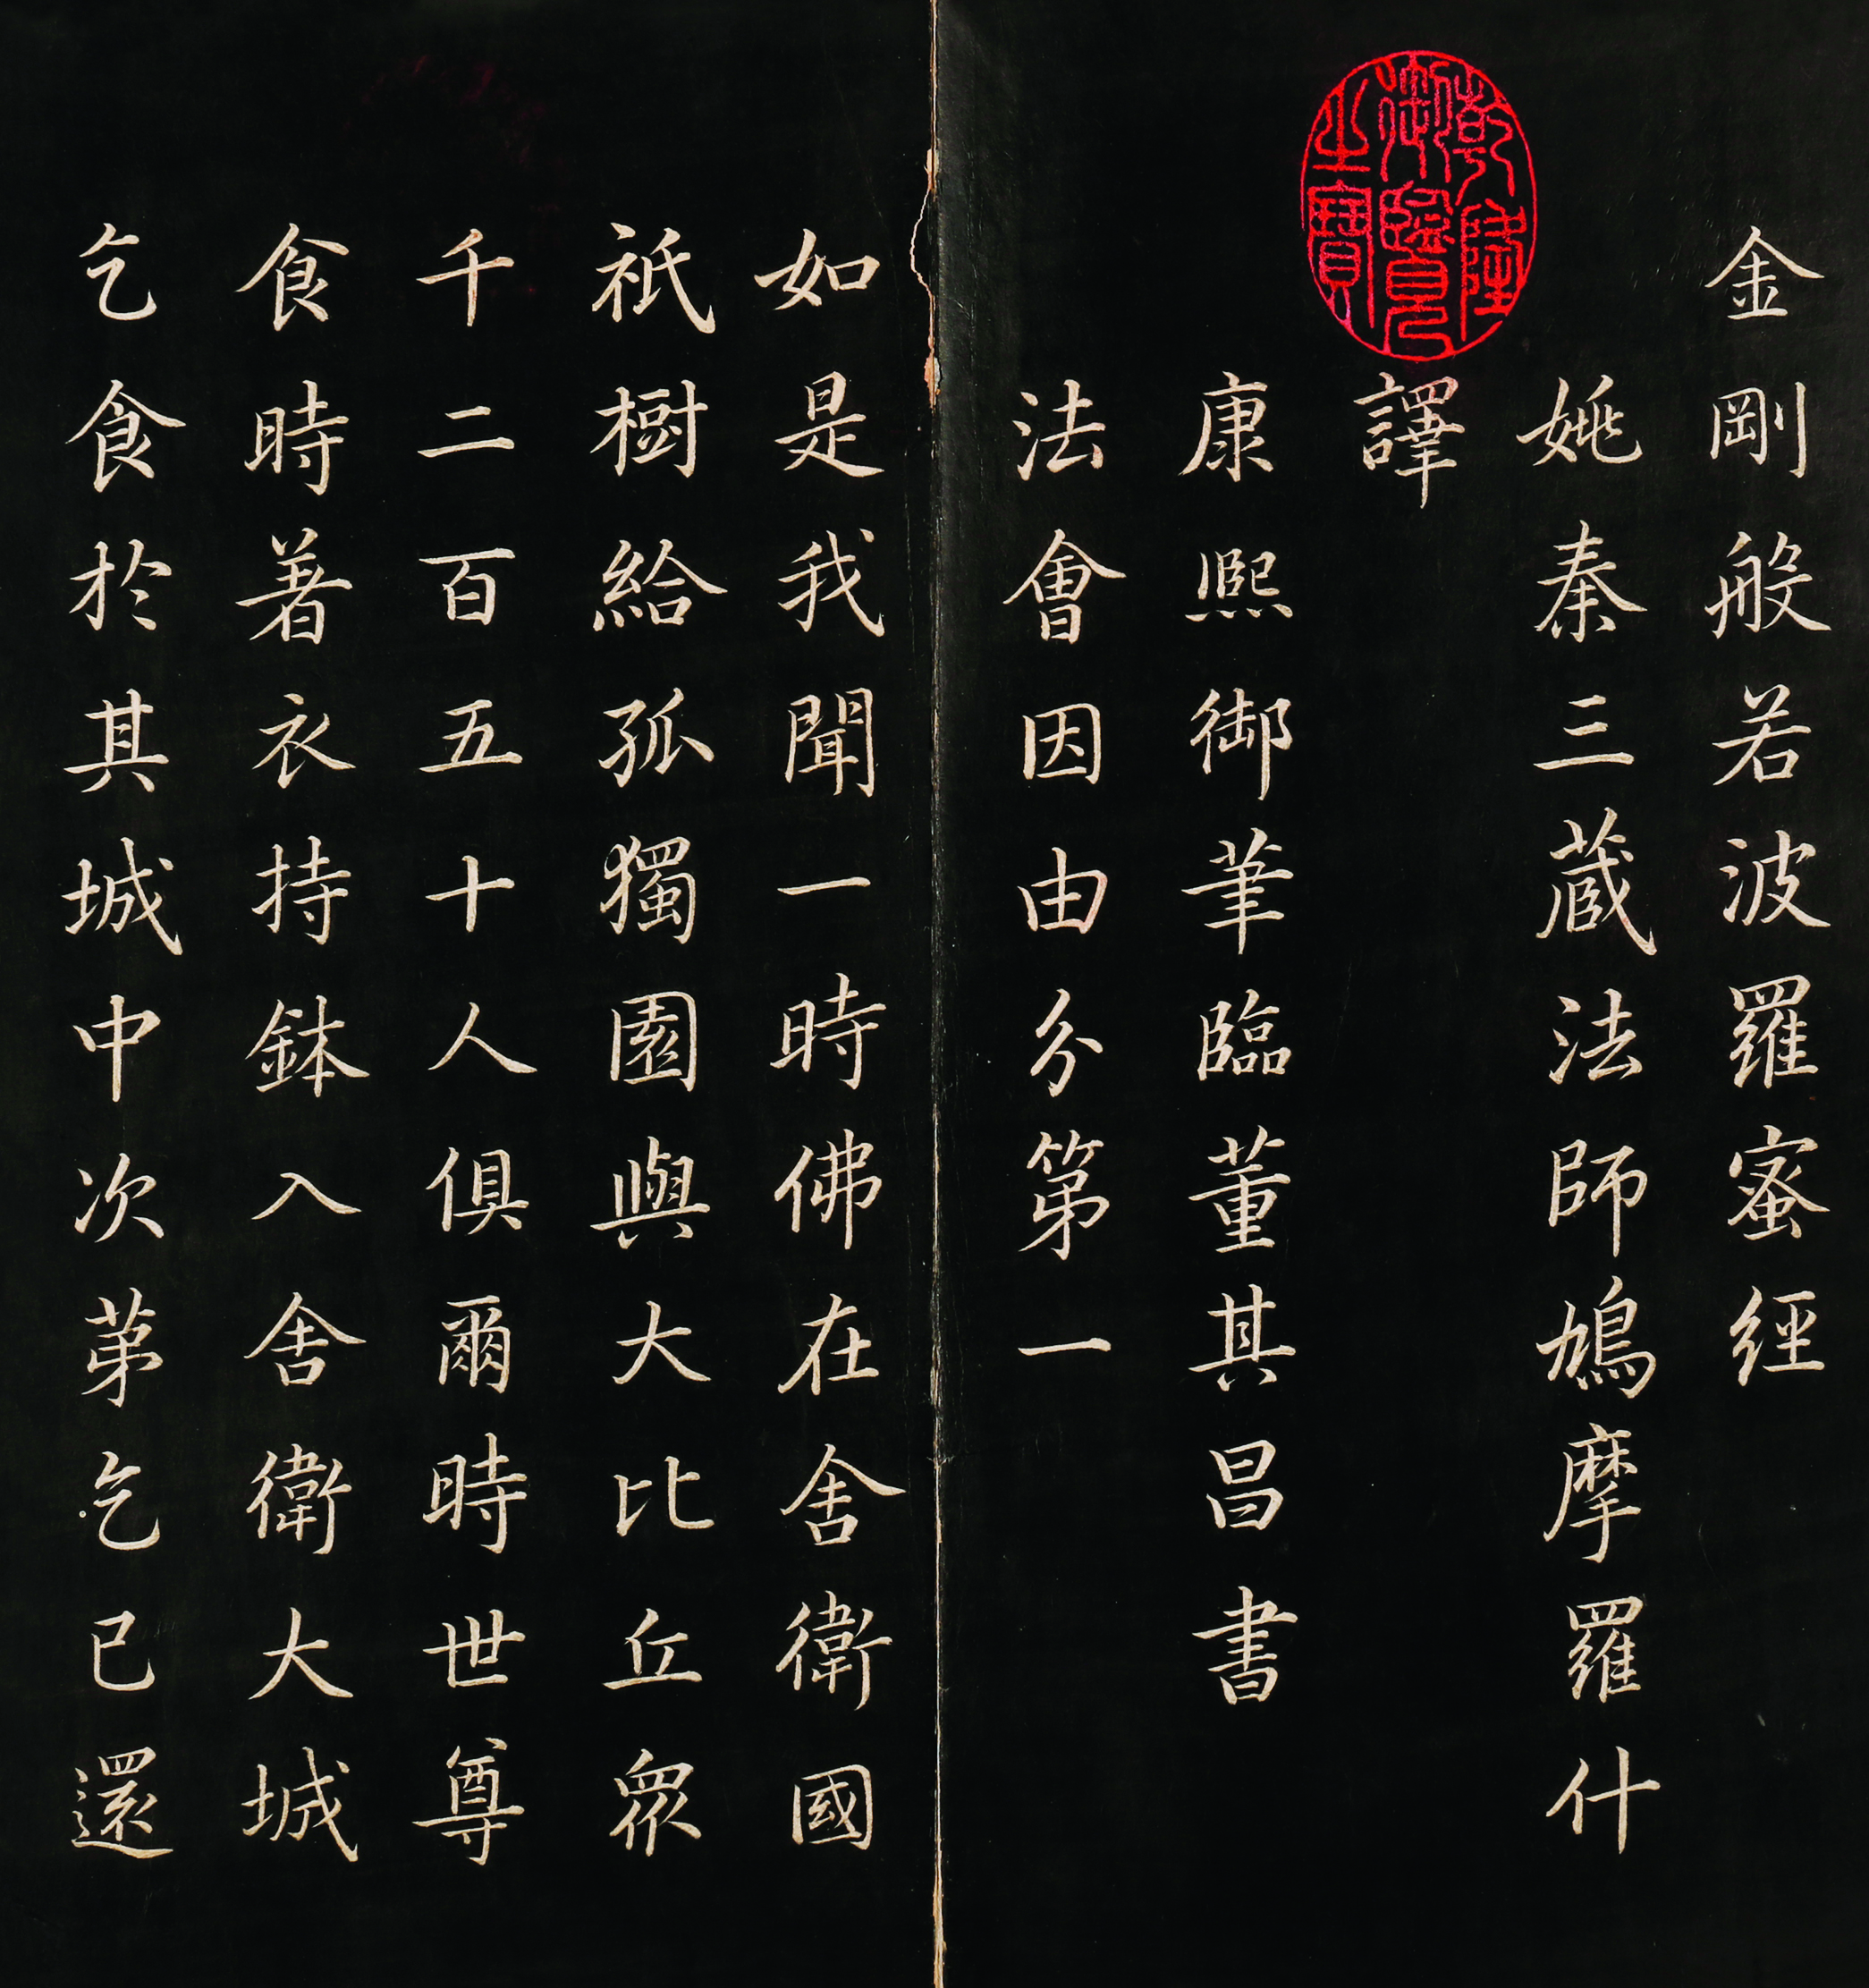 金剛般若波羅蜜經
姚秦三藏法師鳩摩羅什
譯
乾隆御覽之寶
康熙御筆臨董其昌書
法會因由分第一
如是我聞一時佛在舍衛國
祇樹給孤獨園與大比丘眾
千二百五十人俱爾時世尊
食時著衣持鉢入舍衛大城
乞食於其城中次第乞已還